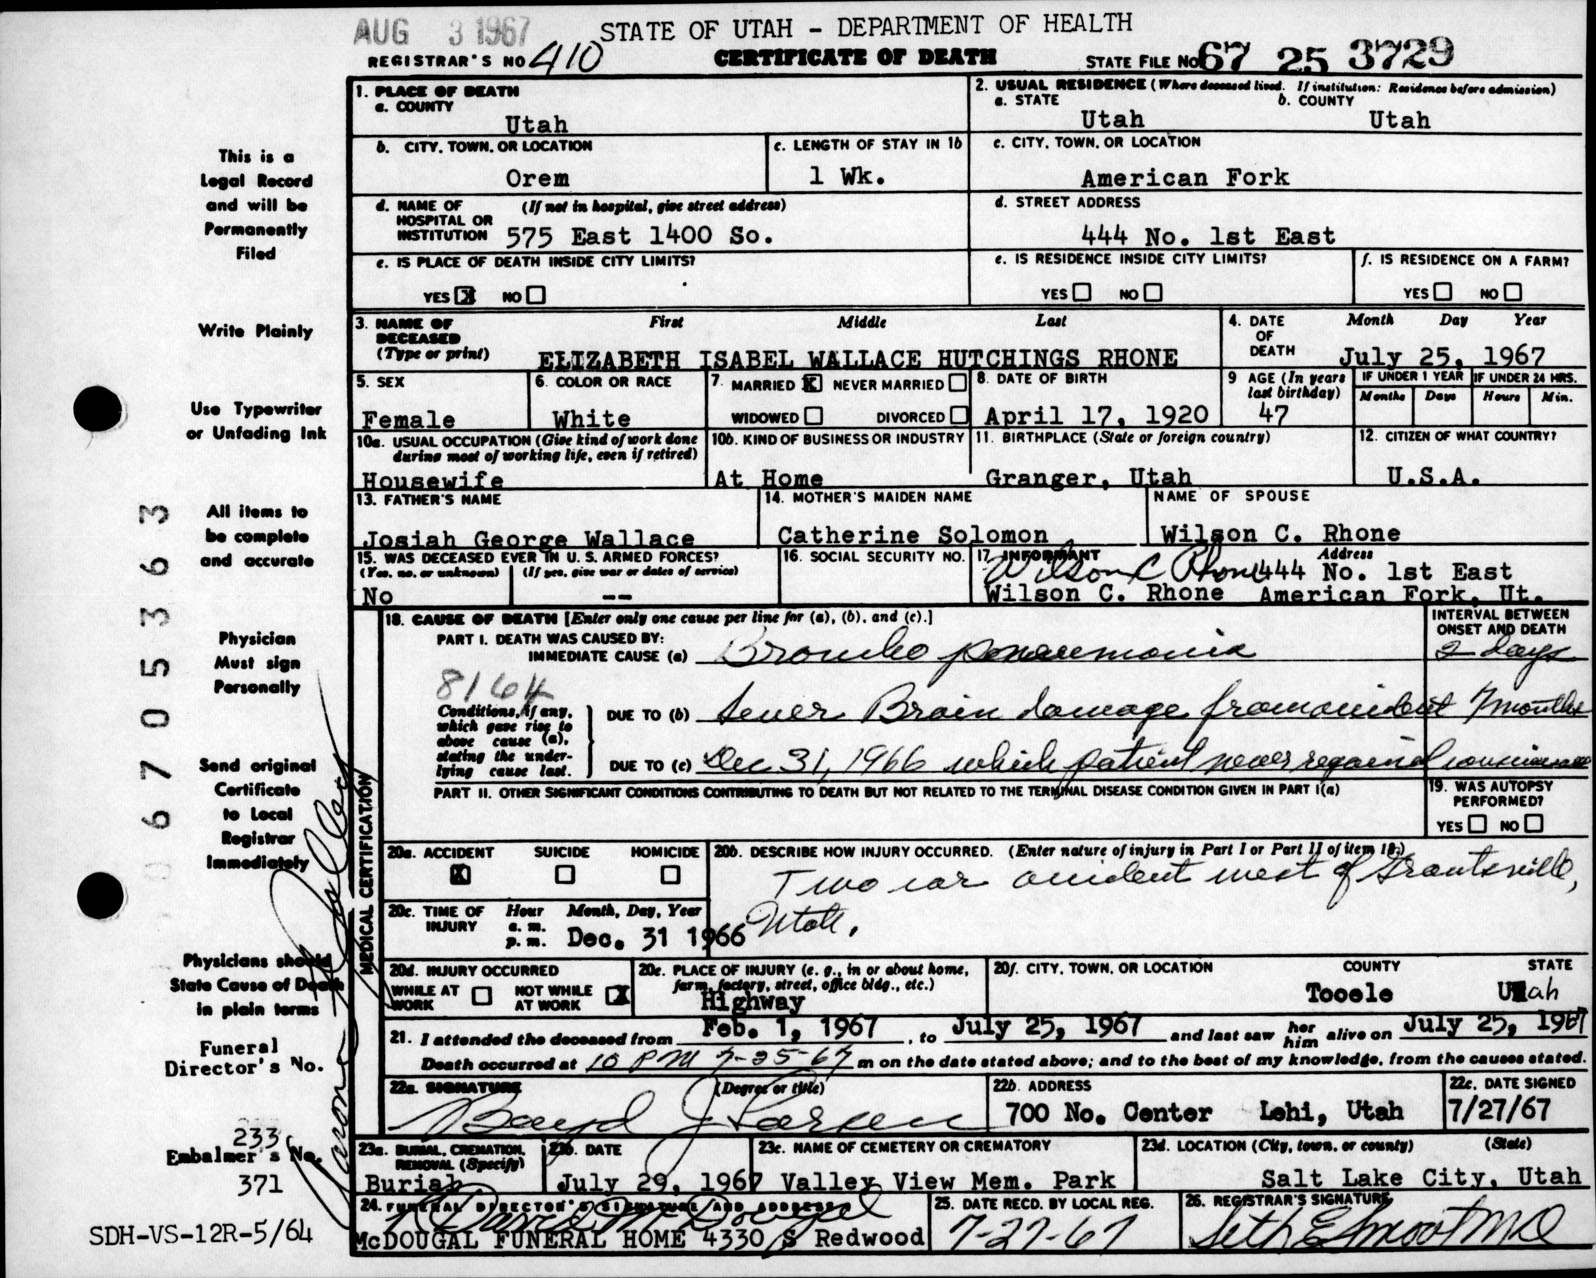 AUG 3 1967
STATE OF UTAH - DEPARTMENT OF HEALTH
REGISTRAR'S NO 410
CERTIFICATE OF DEATH
STATE FILE NO. 67 25 3729
This is a
Legal Record
and will be
Permanently
Filed
Write Plainly
Use Typewriter
or Unfading Ink
All items to
be complete
and accurate
Physician
Must sign
Personally
Send original
Certificate
to Local
Registrar
Immediately
Physicians should
State Cause of Death
in plain terms
Funeral
Director's No.
233
Embalmer's No.
371
SDH-VS-12R-5/64
06705363
1. PLACE OF DEATH
a. COUNTY
Utah
2. USUAL RESIDENCE (Where deceased lived. If institution: Residence before admission)
a. STATE b. COUNTY
Utah Utah
b. CITY, TOWN, OR LOCATION
Orem
c. LENGTH OF STAY IN 1b
1 Wk.
c. CITY, TOWN, OR LOCATION
American Fork
d. NAME OF (If not in hospital, give street address)
HOSPITAL OR
INSTITUTION 575 East 1400 So.
d. STREET ADDRESS
444 No. 1st East
e. IS PLACE OF DEATH INSIDE CITY LIMITS?
YES X NO
e. IS RESIDENCE INSIDE CITY LIMITS?
YES NO
f. IS RESIDENCE ON A FARM?
YES NO
3. NAME OF First Middle Last
DECEASED
(Type or print) ELIZABETH ISABEL WALLACE HUTCHINGS RHONE
4. DATE Month Day Year
OF
DEATH July 25, 1967
5. SEX
Female
6. COLOR OR RACE
White
7. MARRIED X NEVER MARRIED
WIDOWED DIVORCED
8. DATE OF BIRTH
April 17, 1920
9 AGE (In years
last birthday)
47
IF UNDER 1 YEAR IF UNDER 24 HRS.
Months Days Hours Min.
10a. USUAL OCCUPATION (Give kind of work done
during most of working life, even if retired)
Housewife
10b. KIND OF BUSINESS OR INDUSTRY
At Home
11. BIRTHPLACE (State or foreign country)
Granger, Utah
12. CITIZEN OF WHAT COUNTRY?
U.S.A.
13. FATHER'S NAME
Josiah George Wallace
14. MOTHER'S MAIDEN NAME
Catherine Solomon
NAME OF SPOUSE
Wilson C. Rhone
15. WAS DECEASED EVER IN U. S. ARMED FORCES?
(Yes, no, or unknown) (If yes, give war or dates of service)
No --
16. SOCIAL SECURITY NO.
17. INFORMANT Address
Wilson C Rhone 444 No. 1st East
Wilson C. Rhone American Fork, Ut.
MEDICAL CERTIFICATION
18. CAUSE OF DEATH [Enter only one cause per line for (a), (b), and (c).]
INTERVAL BETWEEN
ONSET AND DEATH
PART I. DEATH WAS CAUSED BY:
IMMEDIATE CAUSE (a) Broncho pneumonia 2 days
8164
Conditions, if any,
which gave rise to
above cause (a),
stating the under-
lying cause last.
DUE TO (b) Sever Brain damage from accident 7 months
DUE TO (c) Dec 31, 1966 which patient never regained
PART II. OTHER SIGNIFICANT CONDITIONS CONTRIBUTING TO DEATH BUT NOT RELATED TO THE TERMINAL DISEASE CONDITION GIVEN IN PART I(a)
19. WAS AUTOPSY
PERFORMED?
YES NO
20a. ACCIDENT SUICIDE HOMICIDE
X
20b. DESCRIBE HOW INJURY OCCURRED. (Enter nature of injury in Part I or Part II of item 18.)
Two car accident west of Grantsville,
Utah.
20c. TIME OF Hour Month, Day, Year
INJURY a. m.
p. m. Dec. 31 1966
20d. INJURY OCCURRED
WHILE AT WORK NOT WHILE AT WORK X
20e. PLACE OF INJURY (e. g., in or about home,
farm, factory, street, office bldg., etc.)
Highway
20f. CITY, TOWN, OR LOCATION COUNTY STATE
Tooele Utah
21. I attended the deceased from Feb. 1, 1967, to July 25, 1967 and last saw her him alive on July 25, 1967
Death occurred at 10 PM 7-25-67 m on the date stated above; and to the best of my knowledge, from the causes stated.
22a. SIGNATURE (Degree or title)
Boyd J Larsen
22b. ADDRESS
700 No. Center Lehi, Utah
22c. DATE SIGNED
7/27/67
23a. BURIAL, CREMATION,
REMOVAL (Specify)
Burial
23b. DATE
July 29, 1967
23c. NAME OF CEMETERY OR CREMATORY
Valley View Mem. Park
23d. LOCATION (City, town, or county) (State)
Salt Lake City, Utah
24. FUNERAL DIRECTOR'S SIGNATURE AND ADDRESS
David McDougal
McDOUGAL FUNERAL HOME 4330 S Redwood
25. DATE RECD. BY LOCAL REG.
7-27-67
26. REGISTRAR'S SIGNATURE
Seth E Smoot MD